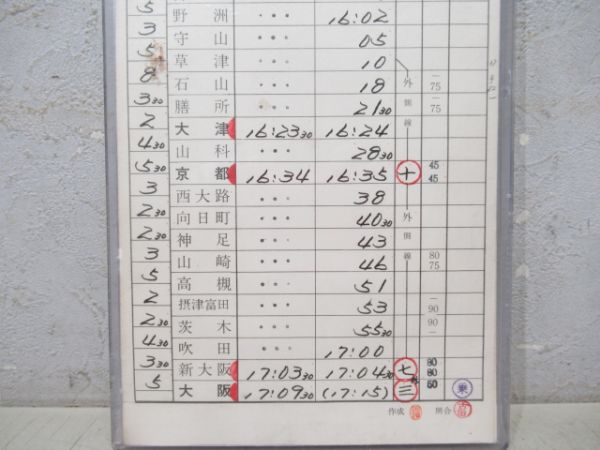 5 野洲 ・・・ 16:02
3 守山 ・・・ 05
5 草津 ・・・ 10
8 石山 ・・・ 18 外 — 75
3 30 膳所 ・・・ 21 30 側 — 75
2 大津 16:23 30 16:24 線
4 30 山科 ・・・ 28 30
5 30 京都 16:34 16:35 十 45 45
3 西大路 ・・・ 38
2 30 向日町 ・・・ 40 30 外
2 30 神足 ・・・ 43 側
3 山崎 ・・・ 46 線 80 75
5 高槻 ・・・ 51
2 摂津富田 ・・・ 53 — 90
2 30 茨木 ・・・ 55 30 90 —
4 30 吹田 ・・・ 17:00
3 30 新大阪 17:03 30 17:04 30 七 80 80
5 大阪 17:09 30 (17:15) 三 50 乗
作成 照合